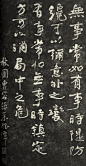 無事常如有事時隄防
纔可以彌意外之變
有事常如無事時鎮定
方可以消局中之危